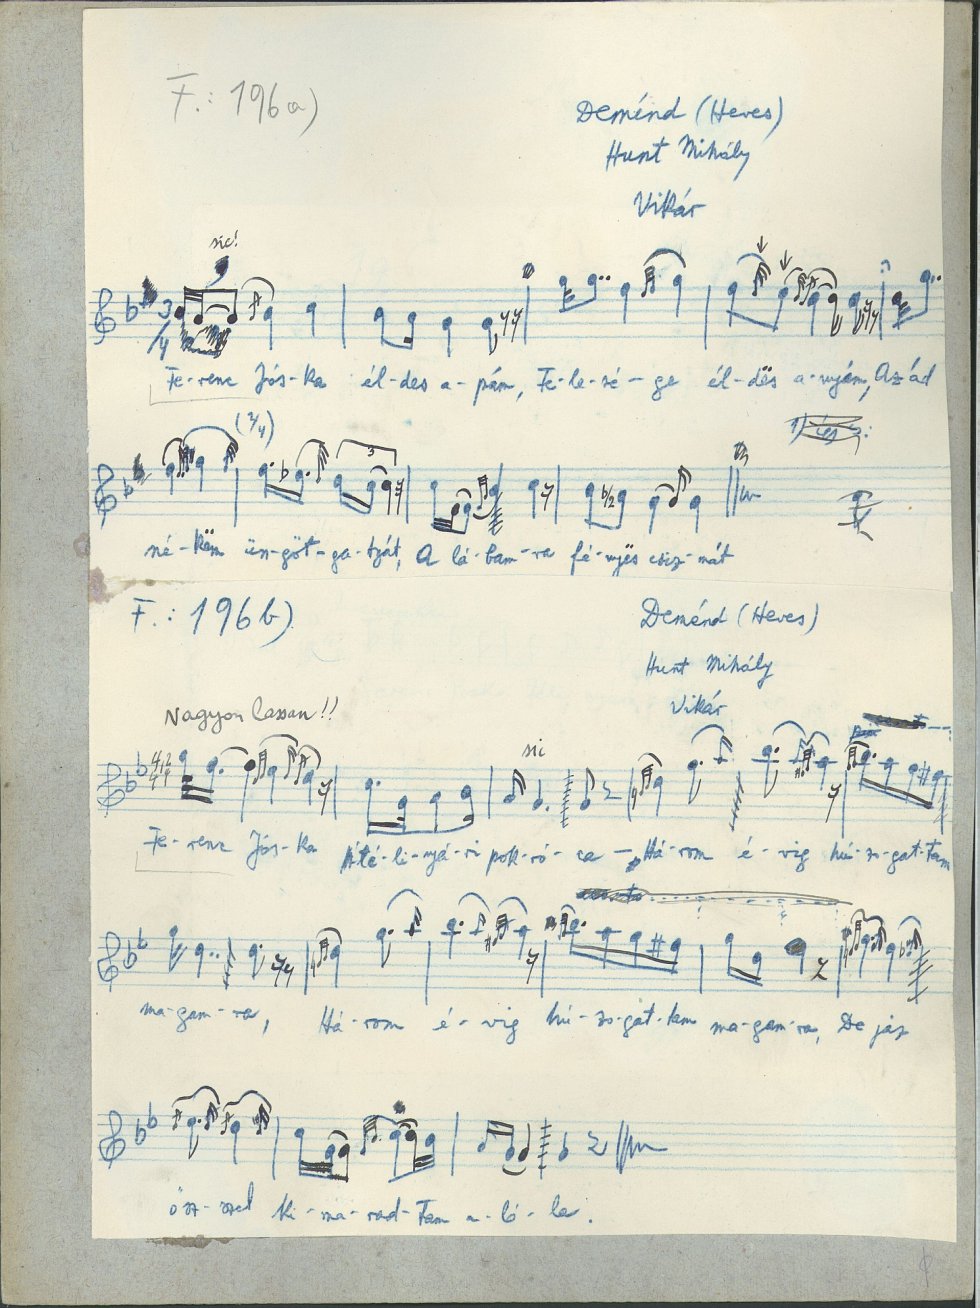 F.: 196a)
Deménd (Heves)
Hunt Mihály
Vikár
sic!
3/4
Fe-renc Jós-ka él-des a-pám, Fe-le-sé-ge él-dës a-nyám, Az ád
(3/4)
3
né-këm ün-göt-ga-tyát, A lá-bam-ra fé-nyës csiz-mát
F.: 196b)
Deménd (Heves)
Hunt Mihály
Vikár
Nagyon lassan!!
sic
Fe-renc Jós-ka Até-li-nyá-ri pok-ró-ca Há-rom é-vig hú-zo-gat-tam
ma-gam-ra, Há-rom é-vig hú-zo-gat-tam ma-gam-ra, De jász
ősz-szel ki-ma-rad-tam a-ló-la.